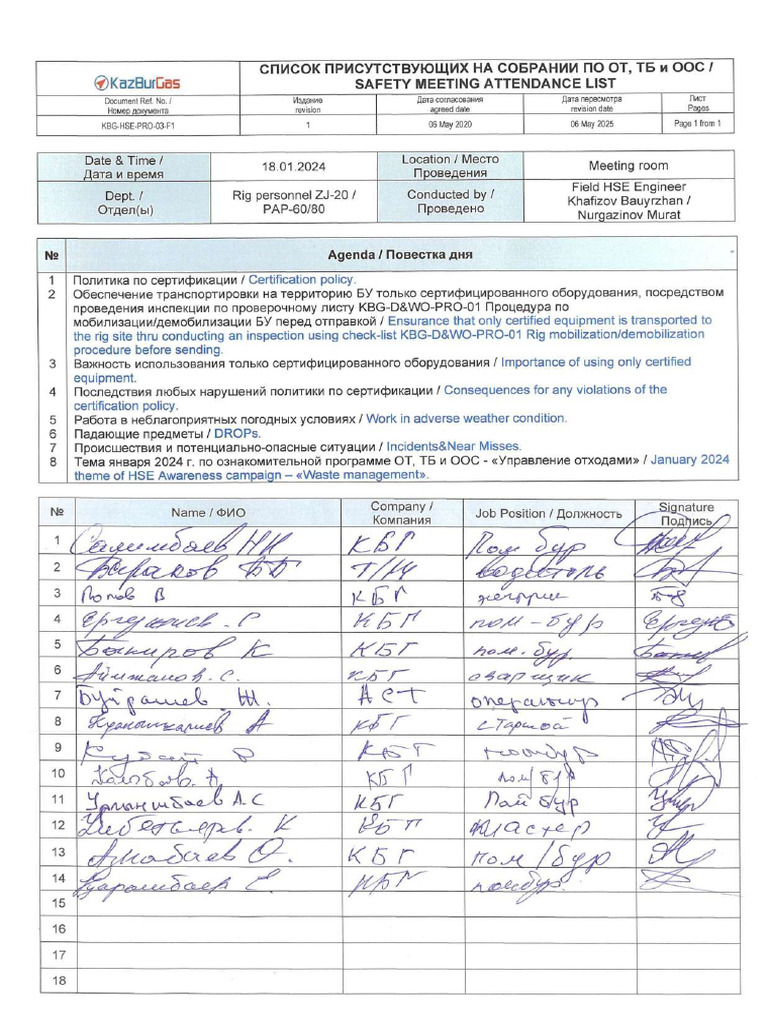 KazBurGas
СПИСОК ПРИСУТСТВУЮЩИХ НА СОБРАНИИ ПО ОТ, ТБ и ООС /
SAFETY MEETING ATTENDANCE LIST
Document Ref. No. /
Номер документа
Издание
revision
Дата согласования
agreed date
Дата пересмотра
revision date
Лист
Pages
KBG-HSE-PRO-03-F1
1
06 May 2020
06 May 2025
Page 1 from 1
Date & Time /
Дата и время
18.01.2024
Location / Место
Проведения
Meeting room
Dept. /
Отдел(ы)
Rig personnel ZJ-20 /
PAP-60/80
Conducted by /
Проведено
Field HSE Engineer
Khafizov Bauyrzhan /
Nurgazinov Murat
№ Agenda / Повестка дня
1 Политика по сертификации / Certification policy.
2 Обеспечение транспортировки на территорию БУ только сертифицированного оборудования, посредством
проведения инспекции по проверочному листу KBG-D&WO-PRO-01 Процедура по
мобилизации/демобилизации БУ перед отправкой / Ensurance that only certified equipment is transported to
the rig site thru conducting an inspection using check-list KBG-D&WO-PRO-01 Rig mobilization/demobilization
procedure before sending.
3 Важность использования только сертифицированного оборудования / Importance of using only certified
equipment.
4 Последствия любых нарушений политики по сертификации / Consequences for any violations of the
certification policy.
5 Работа в неблагоприятных погодных условиях / Work in adverse weather condition.
6 Падающие предметы / DROPs.
7 Происшествия и потенциально-опасные ситуации / Incidents&Near Misses.
8 Тема января 2024 г. по ознакомительной программе ОТ, ТБ и ООС - «Управление отходами» / January 2024
theme of HSE Awareness campaign – «Waste management».
№ Name / ФИО Company / Компания Job Position / Должность Signature Подпись
1 Салимбаев КБГ Пом бур
2 ББ водитель
3 Попов В КБГ
4 КБГ пом-бур
5 К КБГ пом.бур.
6 Айтжанов. С. КБГ сварщик
7 Ж. АСТ оператор
8 А КБГ старшой
9 КБГ помбур
10 А КБГ пом/бур
11 А.С КБГ Пом бур
12 К КБГ
13 О. КБГ пом/бур
14 Е. КБГ помбур
15
16
17
18